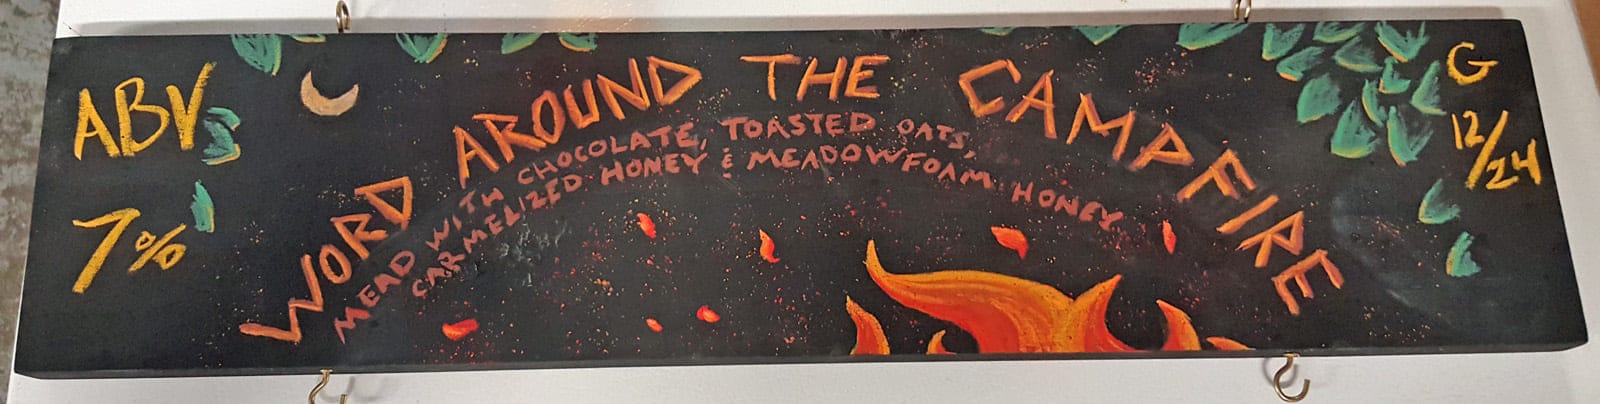 ABV
7%
WORD AROUND THE CAMPFIRE
MEAD WITH CHOCOLATE, TOASTED OATS,
CARMELIZED HONEY & MEADOWFOAM HONEY
G
12/24